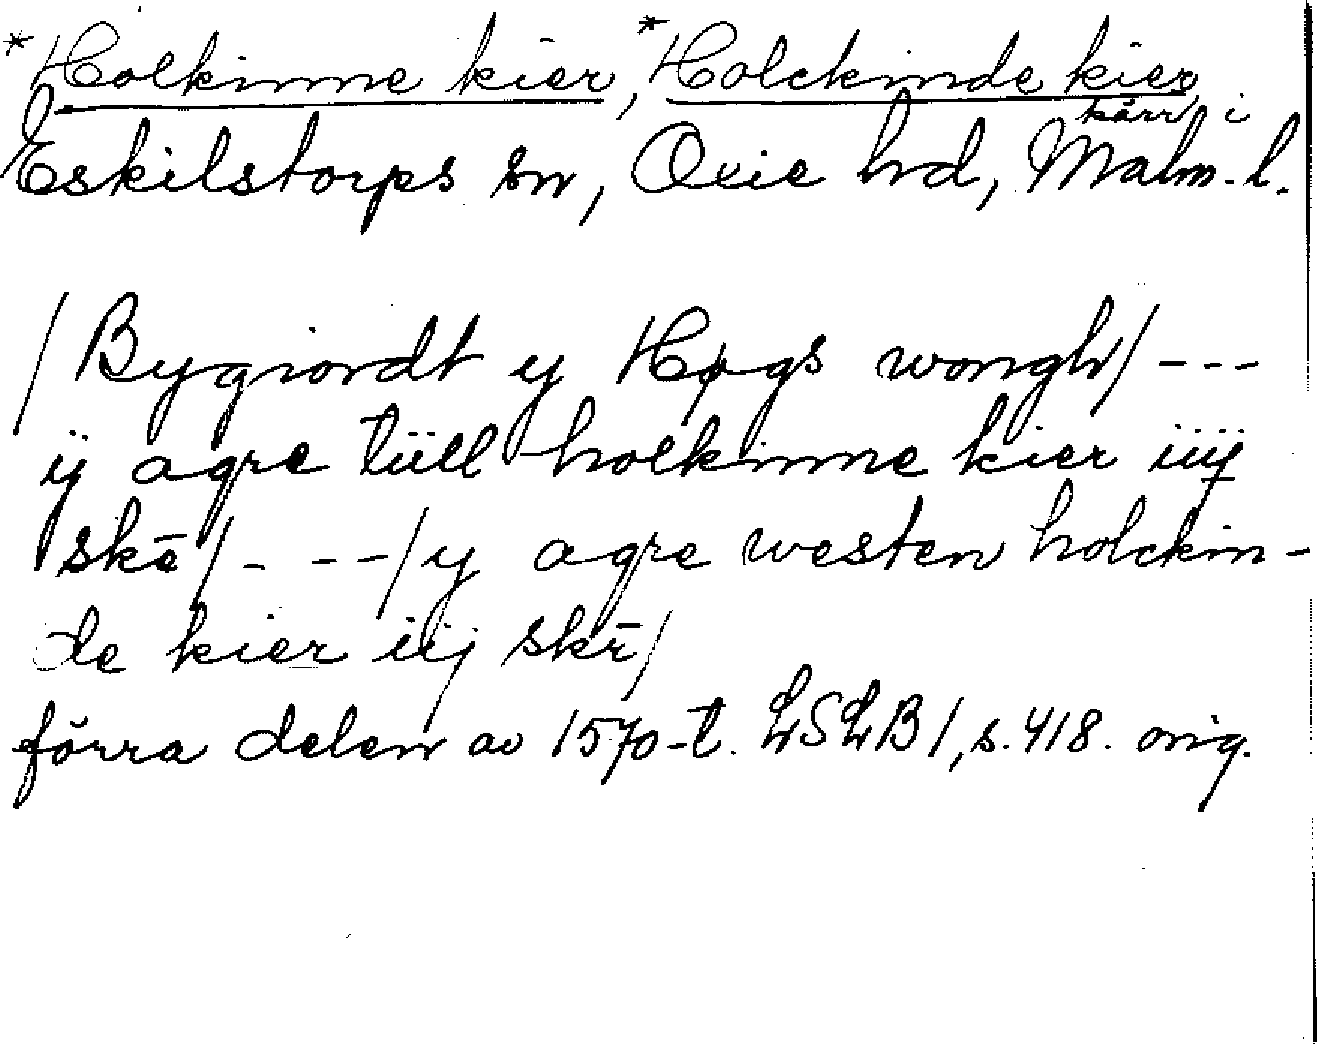 *Holkinne kier, *Holckinde kier
kärr i
Eskilstorps sn, Oxie hd, Malm. l.
/Bygiordt y Høgs wongh/ ---
ij agre tiill holkinne kier iiij
skē/- --/ y agre westen holckin-
de kier iij skē/
förra delen av 1570-t. LSLB 1, s. 418. orig.